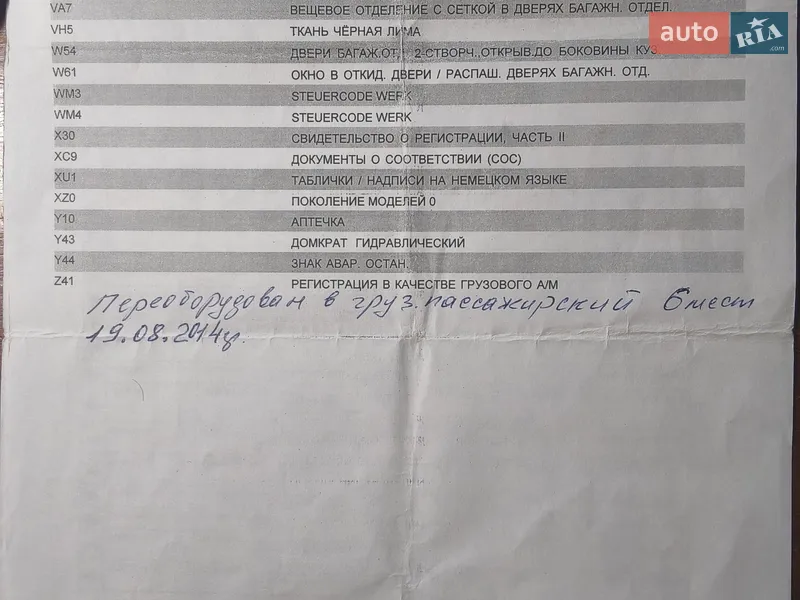 VA7 ВЕЩЕВОЕ ОТДЕЛЕНИЕ С СЕТКОЙ В ДВЕРЯХ БАГАЖН. ОТДЕЛ.
VH5 ТКАНЬ ЧЁРНАЯ ЛИМА
W54 ДВЕРИ БАГАЖ.ОТ. 2-СТВОРЧ.,ОТКРЫВ.ДО БОКОВИНЫ КУЗ
W61 ОКНО В ОТКИД. ДВЕРИ / РАСПАШ. ДВЕРЯХ БАГАЖН. ОТД.
WM3 STEUERCODE WERK
WM4 STEUERCODE WERK
X30 СВИДЕТЕЛЬСТВО О РЕГИСТРАЦИИ, ЧАСТЬ II
XC9 ДОКУМЕНТЫ О СООТВЕТСТВИИ (COC)
XU1 ТАБЛИЧКИ / НАДПИСИ НА НЕМЕЦКОМ ЯЗЫКЕ
XZ0 ПОКОЛЕНИЕ МОДЕЛЕЙ 0
Y10 АПТЕЧКА
Y43 ДОМКРАТ ГИДРАВЛИЧЕСКИЙ
Y44 ЗНАК АВАР. ОСТАН.
Z41 РЕГИСТРАЦИЯ В КАЧЕСТВЕ ГРУЗОВОГО А/М
Переоборудован в груз.пассажирский 6 мест
19.08.2014г.
auto RIA .com